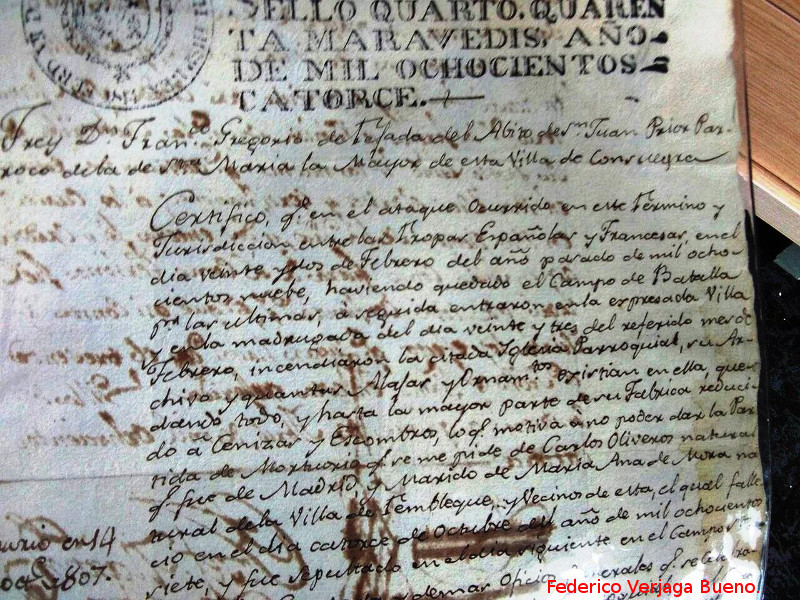 SELLO QUARTO. QUAREN
TA MARAVEDIS, AÑO
DE MIL OCHOCIENTOS
CATORCE.
Frey Dn. Franco. Gregorio de Texada del Abito de Sn. Juan Prior Par-
roco de la de Sta. Maria la Mayor de esta Villa de Consuegra
Certifico, qe. en el ataque Ocurrido en este Término y
Jurisdiccion entre las Tropas Españolas y Francesas, en el
dia veinte y dos de Febrero del año pasado de mil ocho-
cientos nuebe, haviendo quedado el Campo de Batalla
pr. las ultimas, à seguida entraron en la expresada Villa
y en la madrugada del dia veinte y tres del referido mes de
Febrero, incendiaron la citada Iglesia Parroquial, su Ar-
chivo y quantas Alajas y Ornamtos. existian en ella, que-
dando todo, y hasta la mayor parte de su Fabrica reduci-
do a Cenizas y Escombros, lo qe. motiva à no poder dar la Par
tida de Mortuorio qe. se me pide de Carlos Oliveros natural
qe. fue de Madrid, y Marido de Maria Ana de Mora na
tural de la Villa de Tembleque, y Vecinos de esta, el qual falle-
cio en el dia catorce de Octubre del año de mil ochocientos
siete, y fue sepultado en el dia siguiente en el Campo Sto.
y demas Oficios generales qe. se celebra-
en 14
807.
Federico Verjaga Bueno